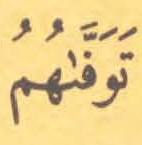 تَوَفَّىٰهُمُ